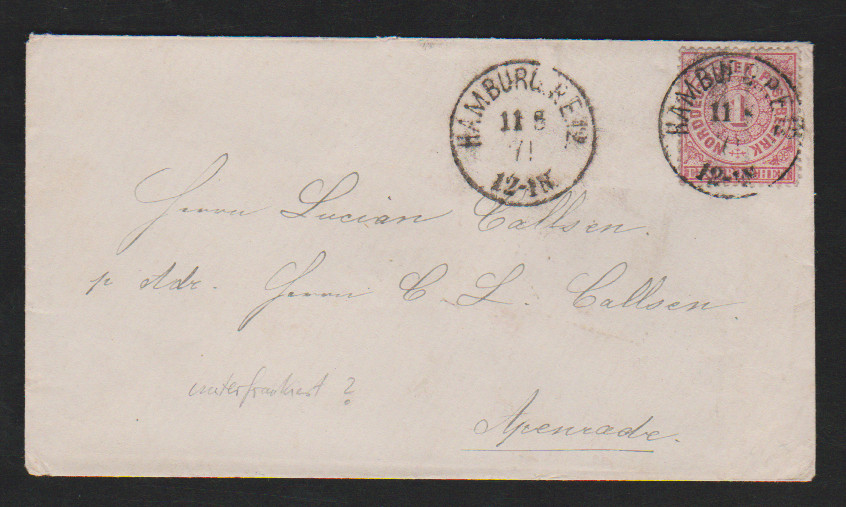 HAMBURG.R.E.12.
11 8
71
12-1N
HAMBURG.R.E.
11 8
7
12-1N
NORDD POSTBEZIRK
1
Herrn Lucian Callsen.
p Adr. Herrn C. L. Callsen.
unterfrankiert?
Apenrade.